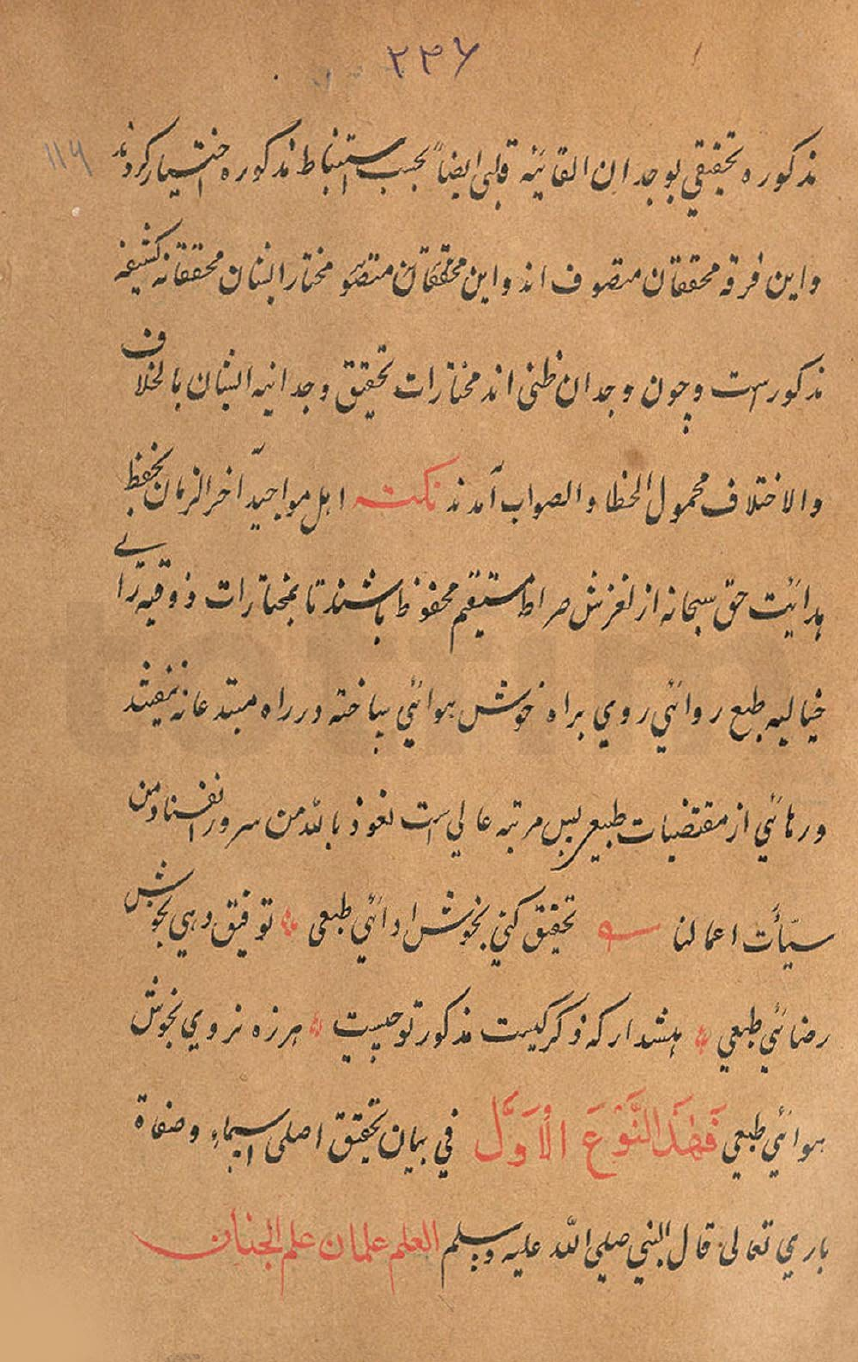 ۲۳۶
۱۱۶
مذکوره تحقیقی بوجدان القائیه قلبی ایضاً بحسب استنباط مذکوره اختیار کردند
واین فرقه محققان متصوف اند واین محققان متصوّ مختار ایشان محققانه کشیفه
مذکور است وچون وجدان ظنی اند مختارات تحقیق وجدانیه ایشان بالخلاف
والاختلاف محمول الخطا والصواب آمدند نکته اهل مواجید آخر الزمان بحفظ
هدائیت حق سبحانه از لغزش صراط مستقیم محفوظ باشند تا بمختارات ذوقیه رائے
خیالیه طبع روائي روي براه خوش هوائي ساخته در راه مبتدعانه نیفتند
ورهائي از مقتضیات طبعي بس مرتبه عالي است نعوذ بالله من شرور انفسنا ومن
سیّأت اعمالنا تحقیق کني بخوش ادائي طبعي توفیق دهي بخوش
رضائي طبعي هشدار که ذکر کیست مذکور تو چیست هرزه نروي بخوش
هوائي طبعي فَهٰذَا النَّوْعَ الْاَوَّلَ في بیان تحقیق اصلی اسماء وصفاة
باري تعالی قال النبي صلي الله علیه وسلم العلم علمان علم الجنان